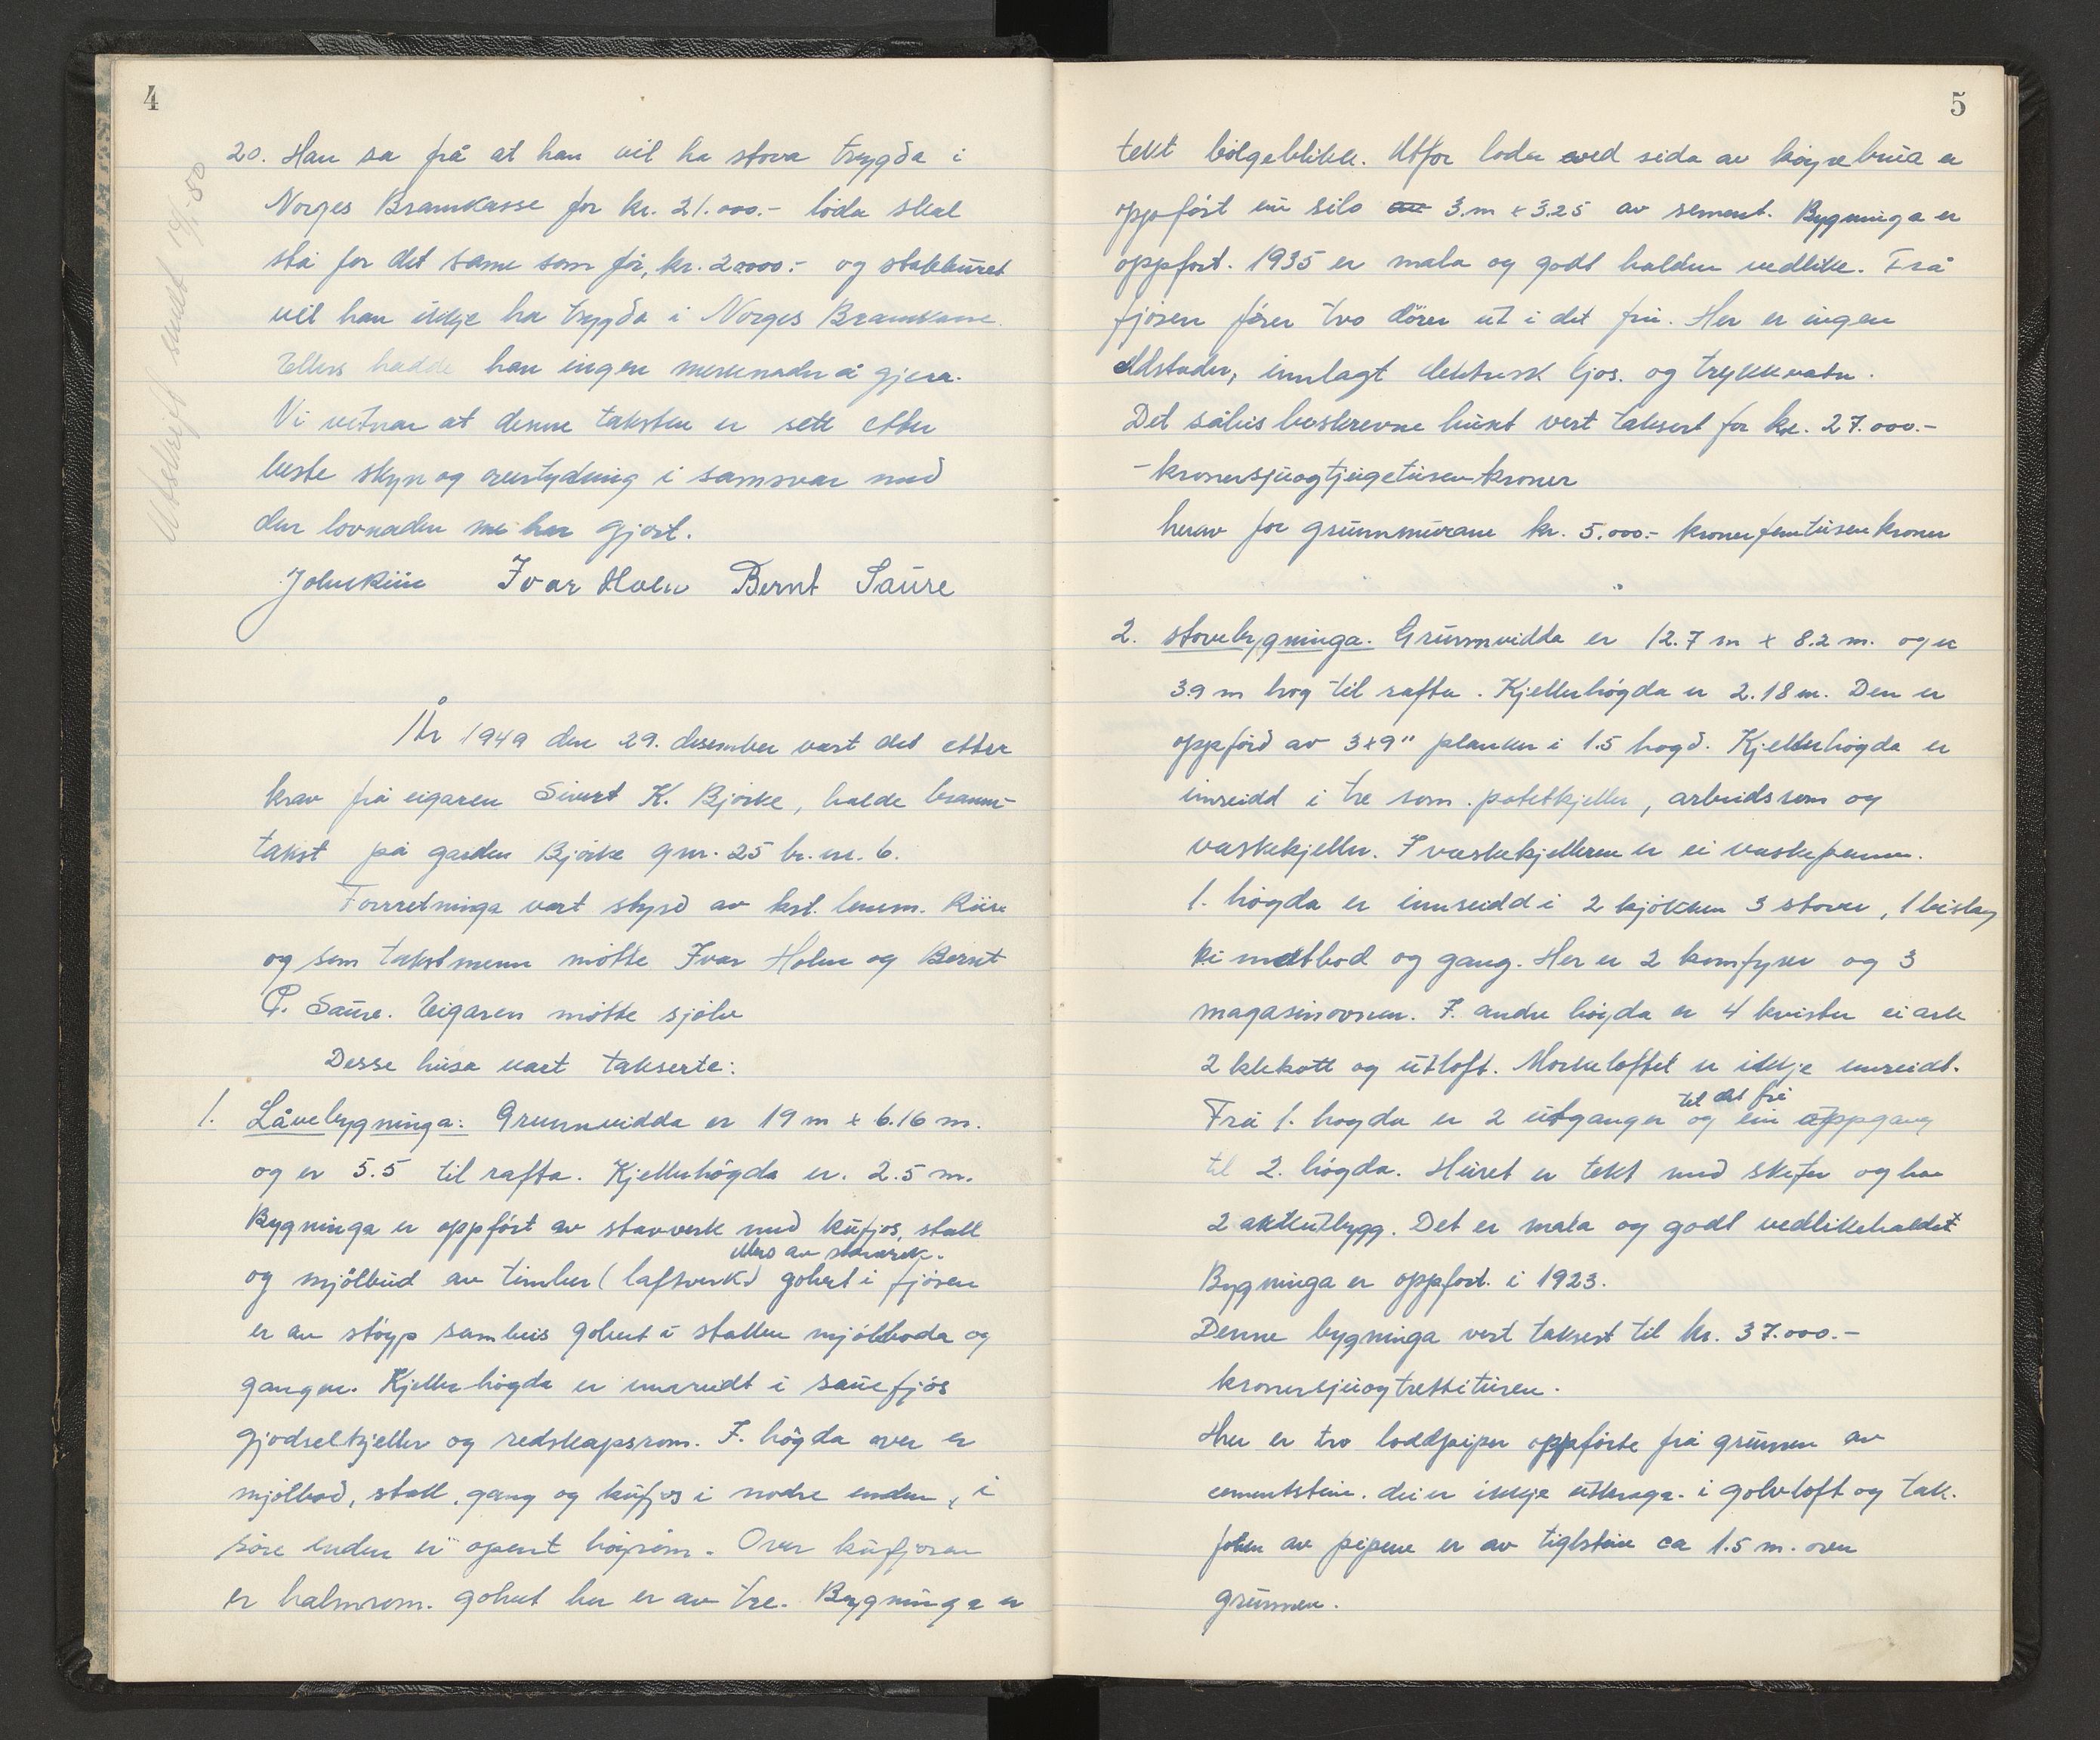 4
Utskrift sendt 10/1-50
20. Han sa frå at han vil ha stova trygda i
Norges Brannkasse for kr. 21.000.- löda skal
stå for det same som för, kr. 20000.- og stabburet
vil han ikkje ha trygda i Norges Brannkasse.
Ellers hadde han ingen merknader å gjera.
Vi vitnar at denne taksten er sett etter
beste skyn og overtydning i samsvar med
den lovnaden me har gjort.
John Kiin Ivar Holen Bernt Saure
År 1949 den 29. desember vart det etter
krav frå eigaren Sivert K. Bjørke, halde brann-
takst på garden Bjørke gnr. 25 br. nr. 6.
Forretninga vart styrd av kst. lensm. Kiin
og som takstmenn møtte Ivar Holen og Bernt
P. Saure. Eigaren møtte sjølv
Desse husa vart takserte:
1. Låvebygninga: Grunnvidda er 19 m x 6.16 m.
og er 5.5 til rafta. Kjellerhögda er. 2.5 m.
Bygninga er oppfört av stavverk med kufjös, stall
ellers av stavverk.
og mjölbud av timber (laftverk) golvet i fjösen
er av støyp samleis golvet i stallen mjölboda og
gangen. Kjellerhögda er innreidt i sauefjös
gjødselkjeller og redskapsrom. I. högda over er
mjölbod, stall, gang og kufjøs i nordre enden, i
söre enden er opent höyrom. Over kufjøsen
er halmrom. golvet her er av tre. Bygninga er
5
tekt bölgeblikk. Utfor loda ved sida av köyrebrua er
oppfört ein silo 3.m x 3.25 av sement. Bygninga er
oppført. 1935 er mala og godt halden vedlike. Frå
fjösen förer tvo dörer ut i det fri. Her er ingen
eldstader, innlagt elektrisk ljos. og trykkvatn.
Det såleis beskrevne huset vert taksert for kr. 27.000.-
- kronersjuogtjugetusen kroner
herav for grunnmurane kr. 5.000.- kronerfemtusen kroner
2. stovebygninga. Grunnvidda er 12.7 m x 8.2 m. og er
3.9 m høg til rafta. Kjellerhögda er 2.18 m. Den er
oppförd av 3x9" planker i 1.5 hogd. Kjellerhögda er
innreidd i tre som potetkjeller, arbeidsrom og
vaskekjeller. I vaskekjelleren er ei vaskepanne.
1. högda er innreidd i 2 kjökken 3 stover, 1 bislag
ei matbod og gang. Her er 2 komfyrer og 3
magasinovner. I. andre högda er 4 kvister ei ark
2 klekott og utloft. Mørkeloftet er ikkje innreidt.
til det fri
Frå 1. hogda er 2 utganger og ein oppgang
til 2. högda. Huset er tekt med skifer og har
2 arkutbygg. Det er mala og godt vedlikehaldet
Bygninga er oppført. i 1923.
Denne bygninga vert taksert til kr. 37.000.-
kronersjuogtrettitusen.
Her er tvo loddpiper oppförte frå grunnen av
cementstein. dei er ikkje utkraga. i golvloft og tak.
foten av pipene er av tiglstein ca 1.5 m. over
grunnen.